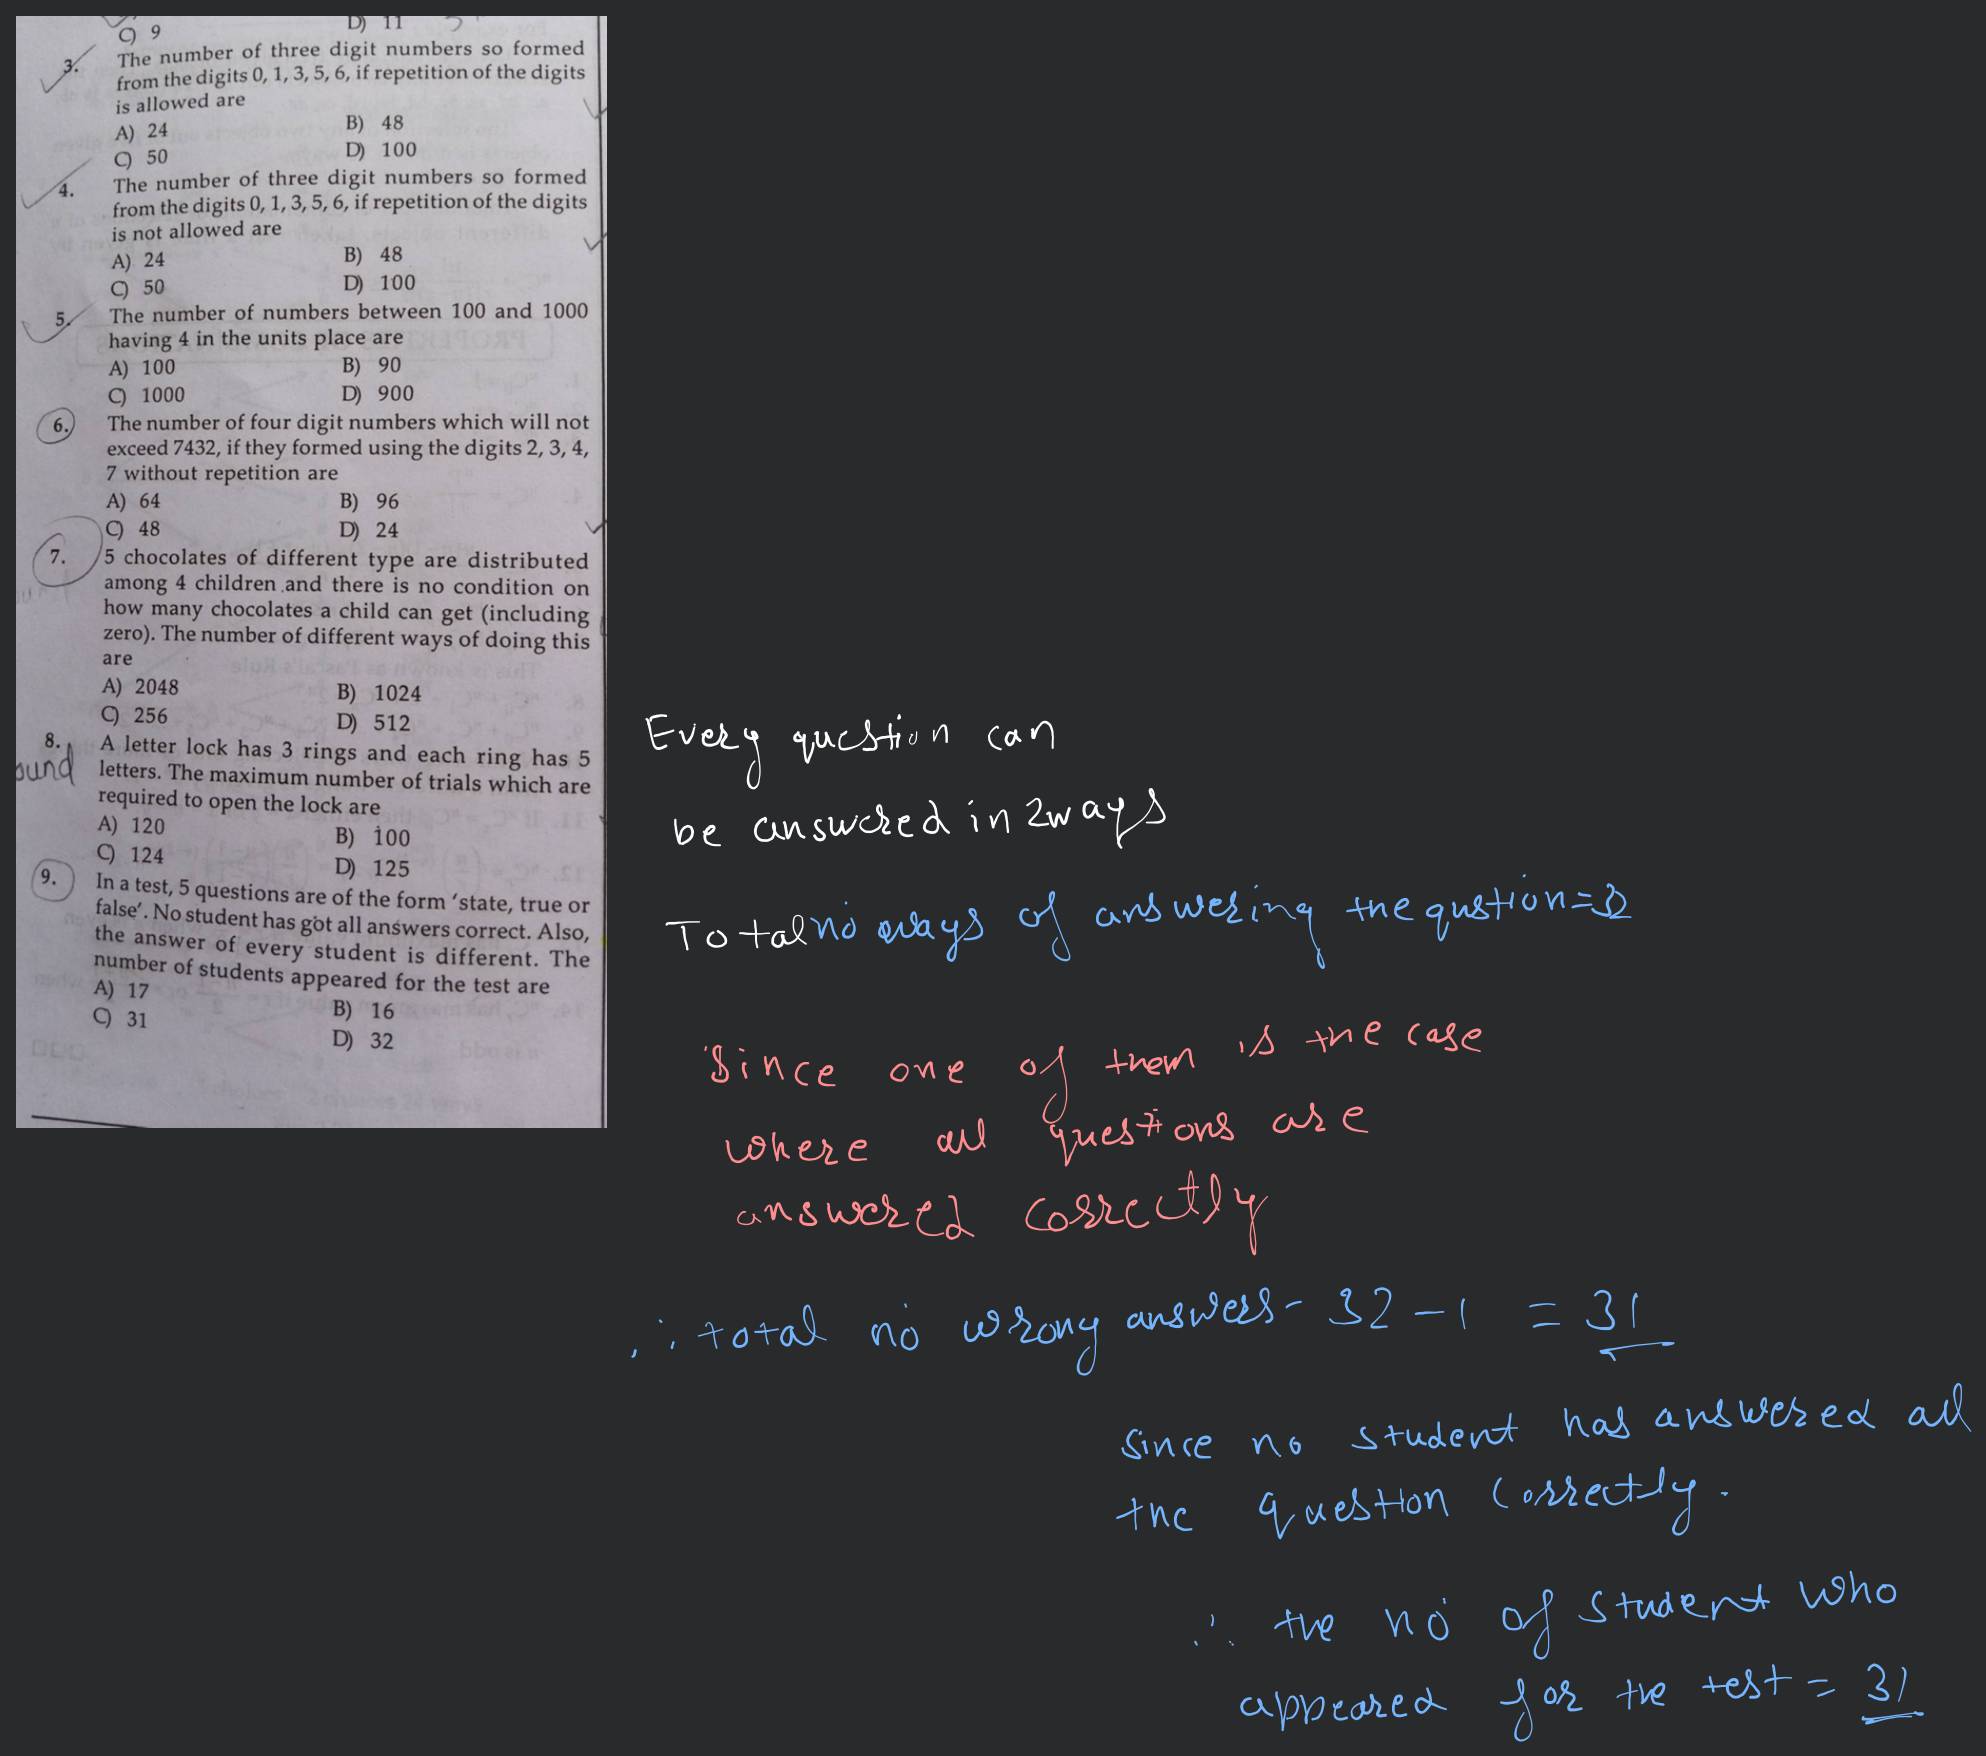 C) 9
D) 11
3. The number of three digit numbers so formed
from the digits 0, 1, 3, 5, 6, if repetition of the digits
is allowed are
A) 24
B) 48
C) 50
D) 100
4. The number of three digit numbers so formed
from the digits 0, 1, 3, 5, 6, if repetition of the digits
is not allowed are
A) 24
B) 48
C) 50
D) 100
5. The number of numbers between 100 and 1000
having 4 in the units place are
A) 100
B) 90
C) 1000
D) 900
6. The number of four digit numbers which will not
exceed 7432, if they formed using the digits 2, 3, 4,
7 without repetition are
A) 64
B) 96
C) 48
D) 24
7. 5 chocolates of different type are distributed
among 4 children and there is no condition on
how many chocolates a child can get (including
zero). The number of different ways of doing this
are
A) 2048
B) 1024
C) 256
D) 512
8. A letter lock has 3 rings and each ring has 5
letters. The maximum number of trials which are
required to open the lock are
A) 120
B) 100
C) 124
D) 125
9. In a test, 5 questions are of the form 'state, true or
false'. No student has got all answers correct. Also,
the answer of every student is different. The
number of students appeared for the test are
A) 17
B) 16
C) 31
D) 32
Every question can
be answered in 2 ways
Total no ways of answering the qustion = 32
Since one of them is the case
where all questions are
answered correctly
∴ total no wrong answers - 32 - 1 = 31
Since no student has answered all
the question correctly.
∴ the no of student who
appeared for the test = 31